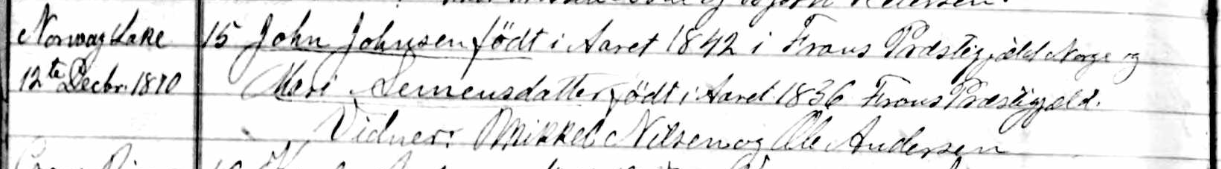 Norway Lake 15 John Johnsen født i Aaret 1842 i Frans Præstegjæld Norge og
12te Decbr. 1870 Mari Semensdatter født i Aaret 1836 Frans Præstegjæld.
Vidner: Mikkel Nilsen og Ole Andersen